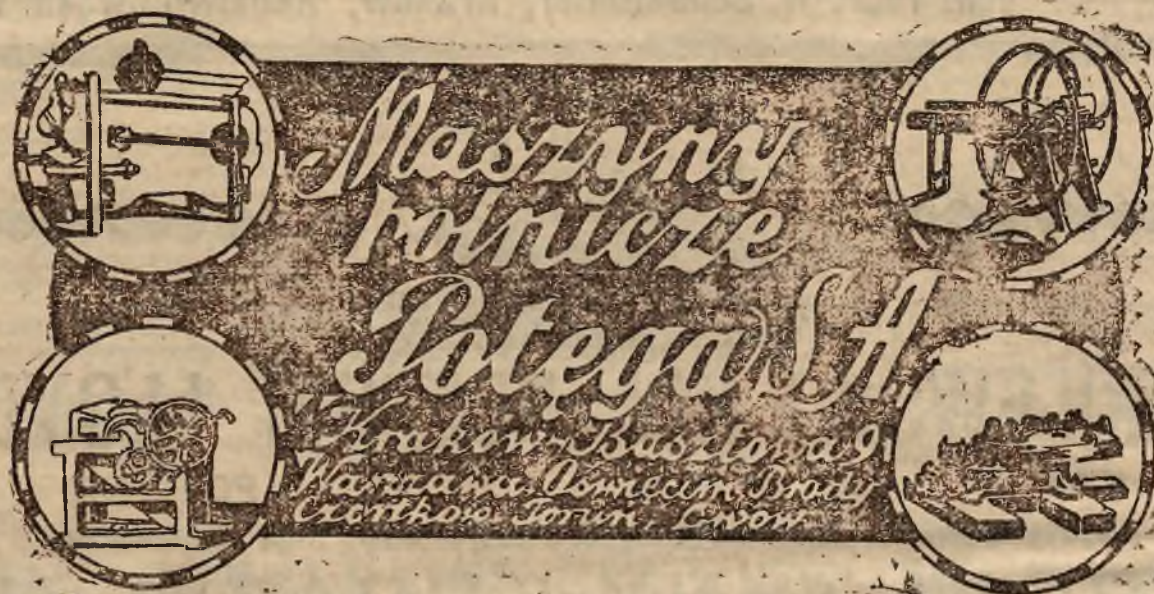 Maszyny
rolnicze
Potęga S.A.
Kraków-Basztowa 9
Warszawa, Oświęcim, Brody
Czortków, Toruń, Lwów